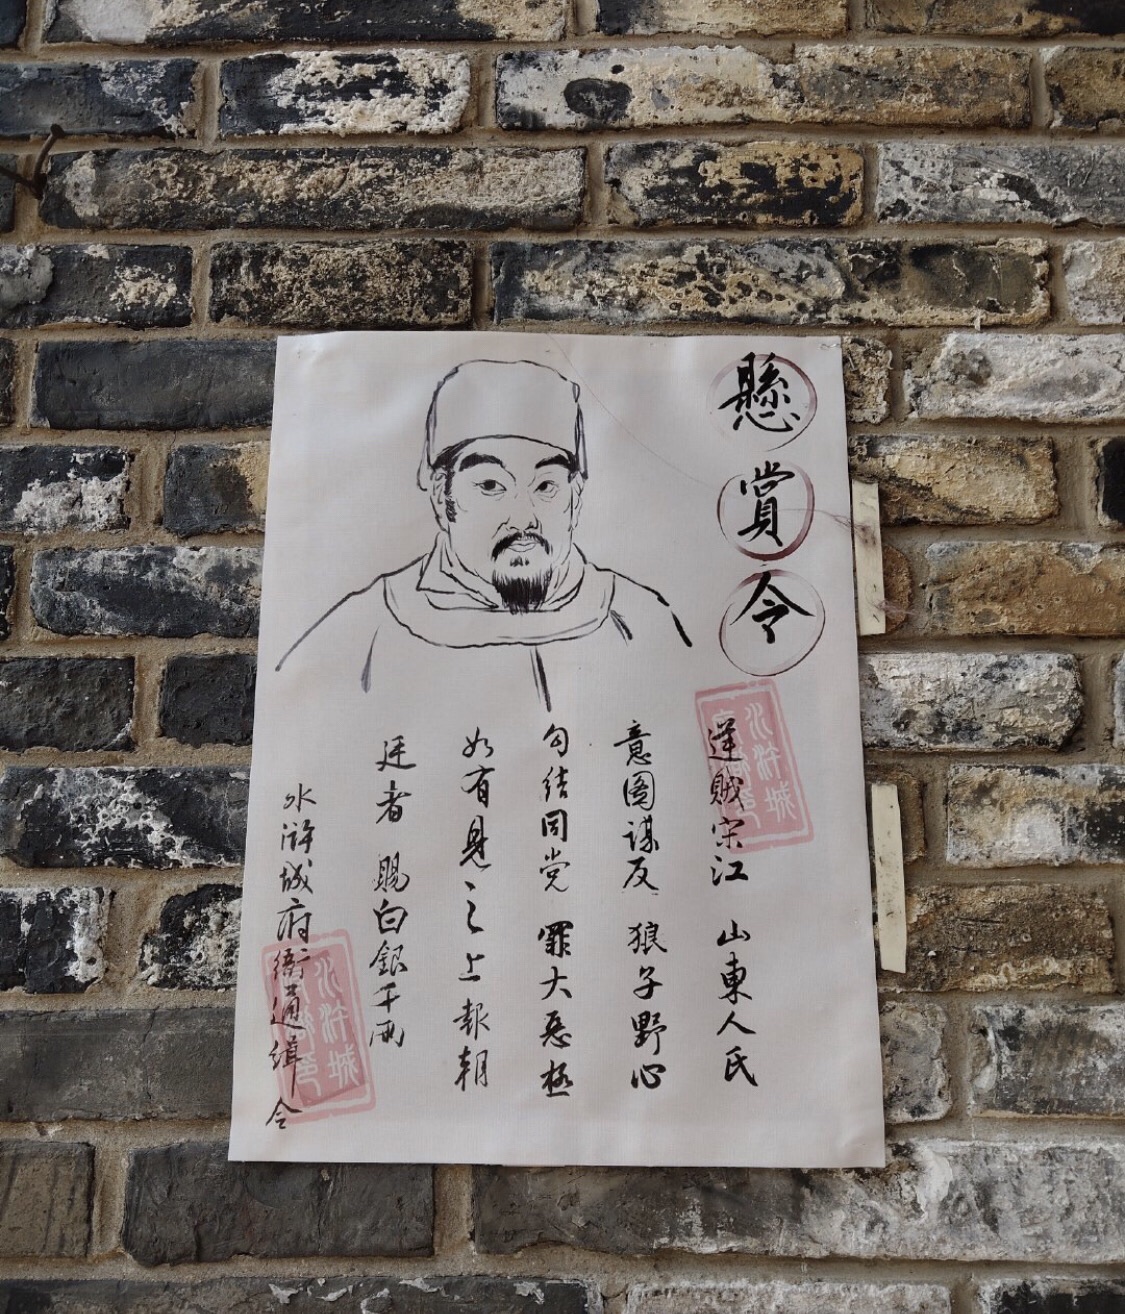 懸賞令
逆賊宋江 山東人氏
意圖謀反 狼子野心
勾结同党 罪大恶極
如有見之上報朝
廷者 賜白銀千兩
水滸城府衙通緝令